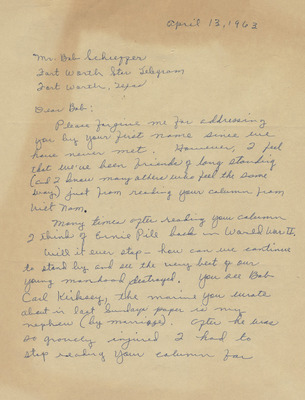 April 13, 1963
Mr. Bob Schieffer
Fort Worth Star Telegram
Fort Worth, Texas
Dear Bob:
Please forgive me for addressing
you by your first name since we
have never met. However, I feel
that we've been friends of long standing
(and I know many others who feel the same
way) just from reading your column from
Viet Nam.
Many times after reading your column
I think of Ernie Pile back in World War II.
Will it ever stop - how can we continue
to stand by and see the very best of our
young manhood destroyed. You see Bob
Carl Kirksey, the marine you wrote
about in last Sundays paper is my
nephew (by marriage). After he was
so gravely injured I had to
stop reading your column for